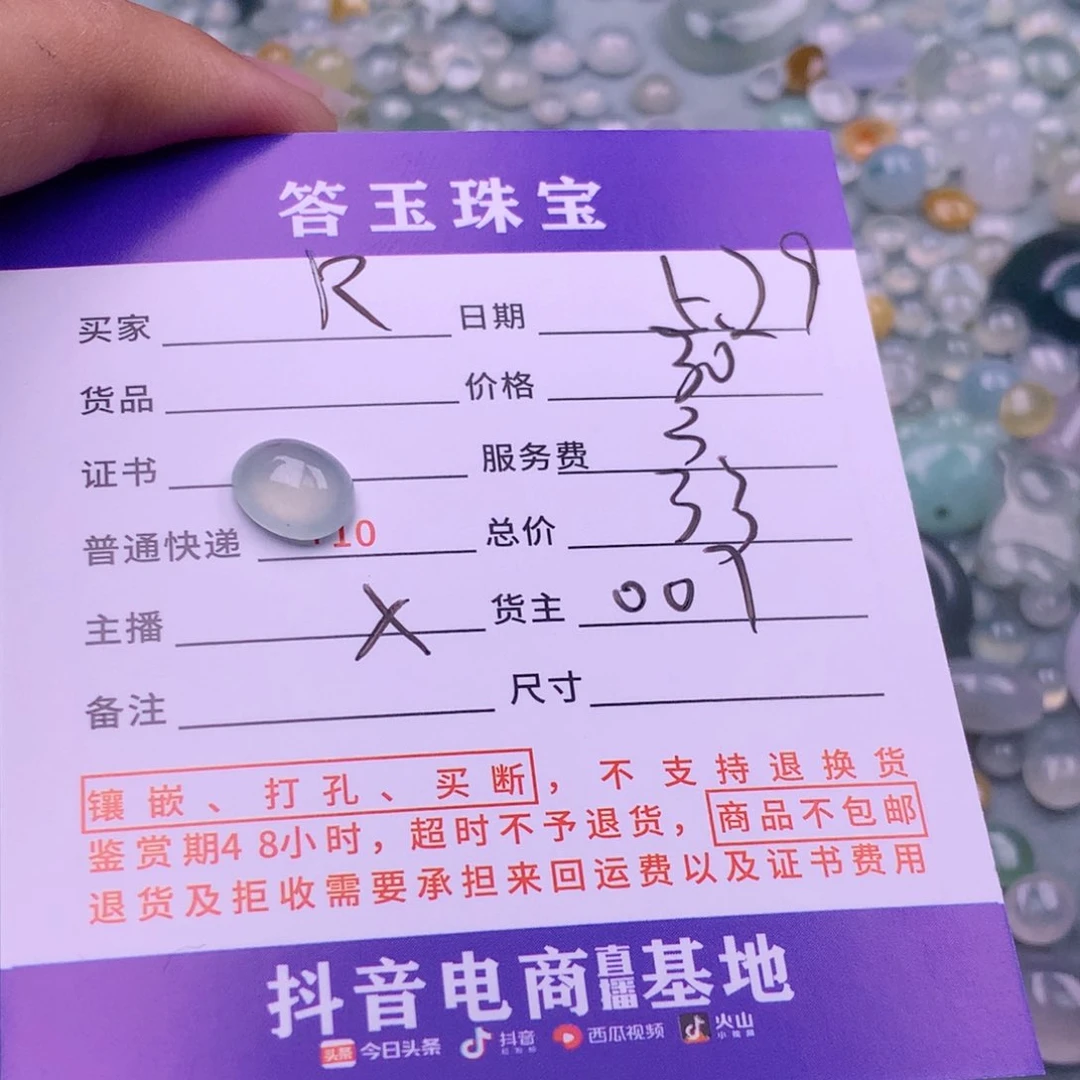 答玉珠宝
买家 R 日期
货品 价格 30
证书 服务费 3
普通快递 10 总价 33
主播 X 货主 007
备注 尺寸
镶嵌、打孔、买断，不支持退换货
鉴赏期48小时，超时不予退货，商品不包邮
退货及拒收需要承担来回运费以及证书费用
抖音电商直播基地
头条 今日头条 抖音 西瓜视频 火山